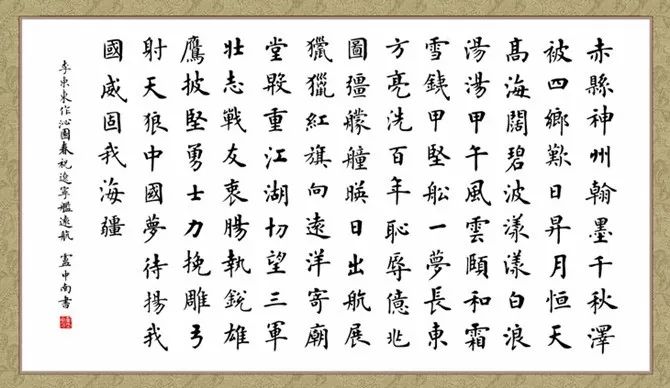 赤縣神州翰墨千秋澤
被四鄉歎日昇月恒天
髙海闊碧波漾漾白浪
湯湯甲午風雲頤和霜
雪銕甲堅舩一夢長東
方亮洗百年恥辱億兆
圖彊艨艟暎日出航展
獵獵紅旗向遠洋寄廟
堂殷重江湖切望三軍
壯志戰友衷腸執銳雄
鷹披堅勇士力挽雕弓
射天狼中國夢待揚我
國威固我海疆
李東東作沁園春祝遼寧艦遠航 盧中南書